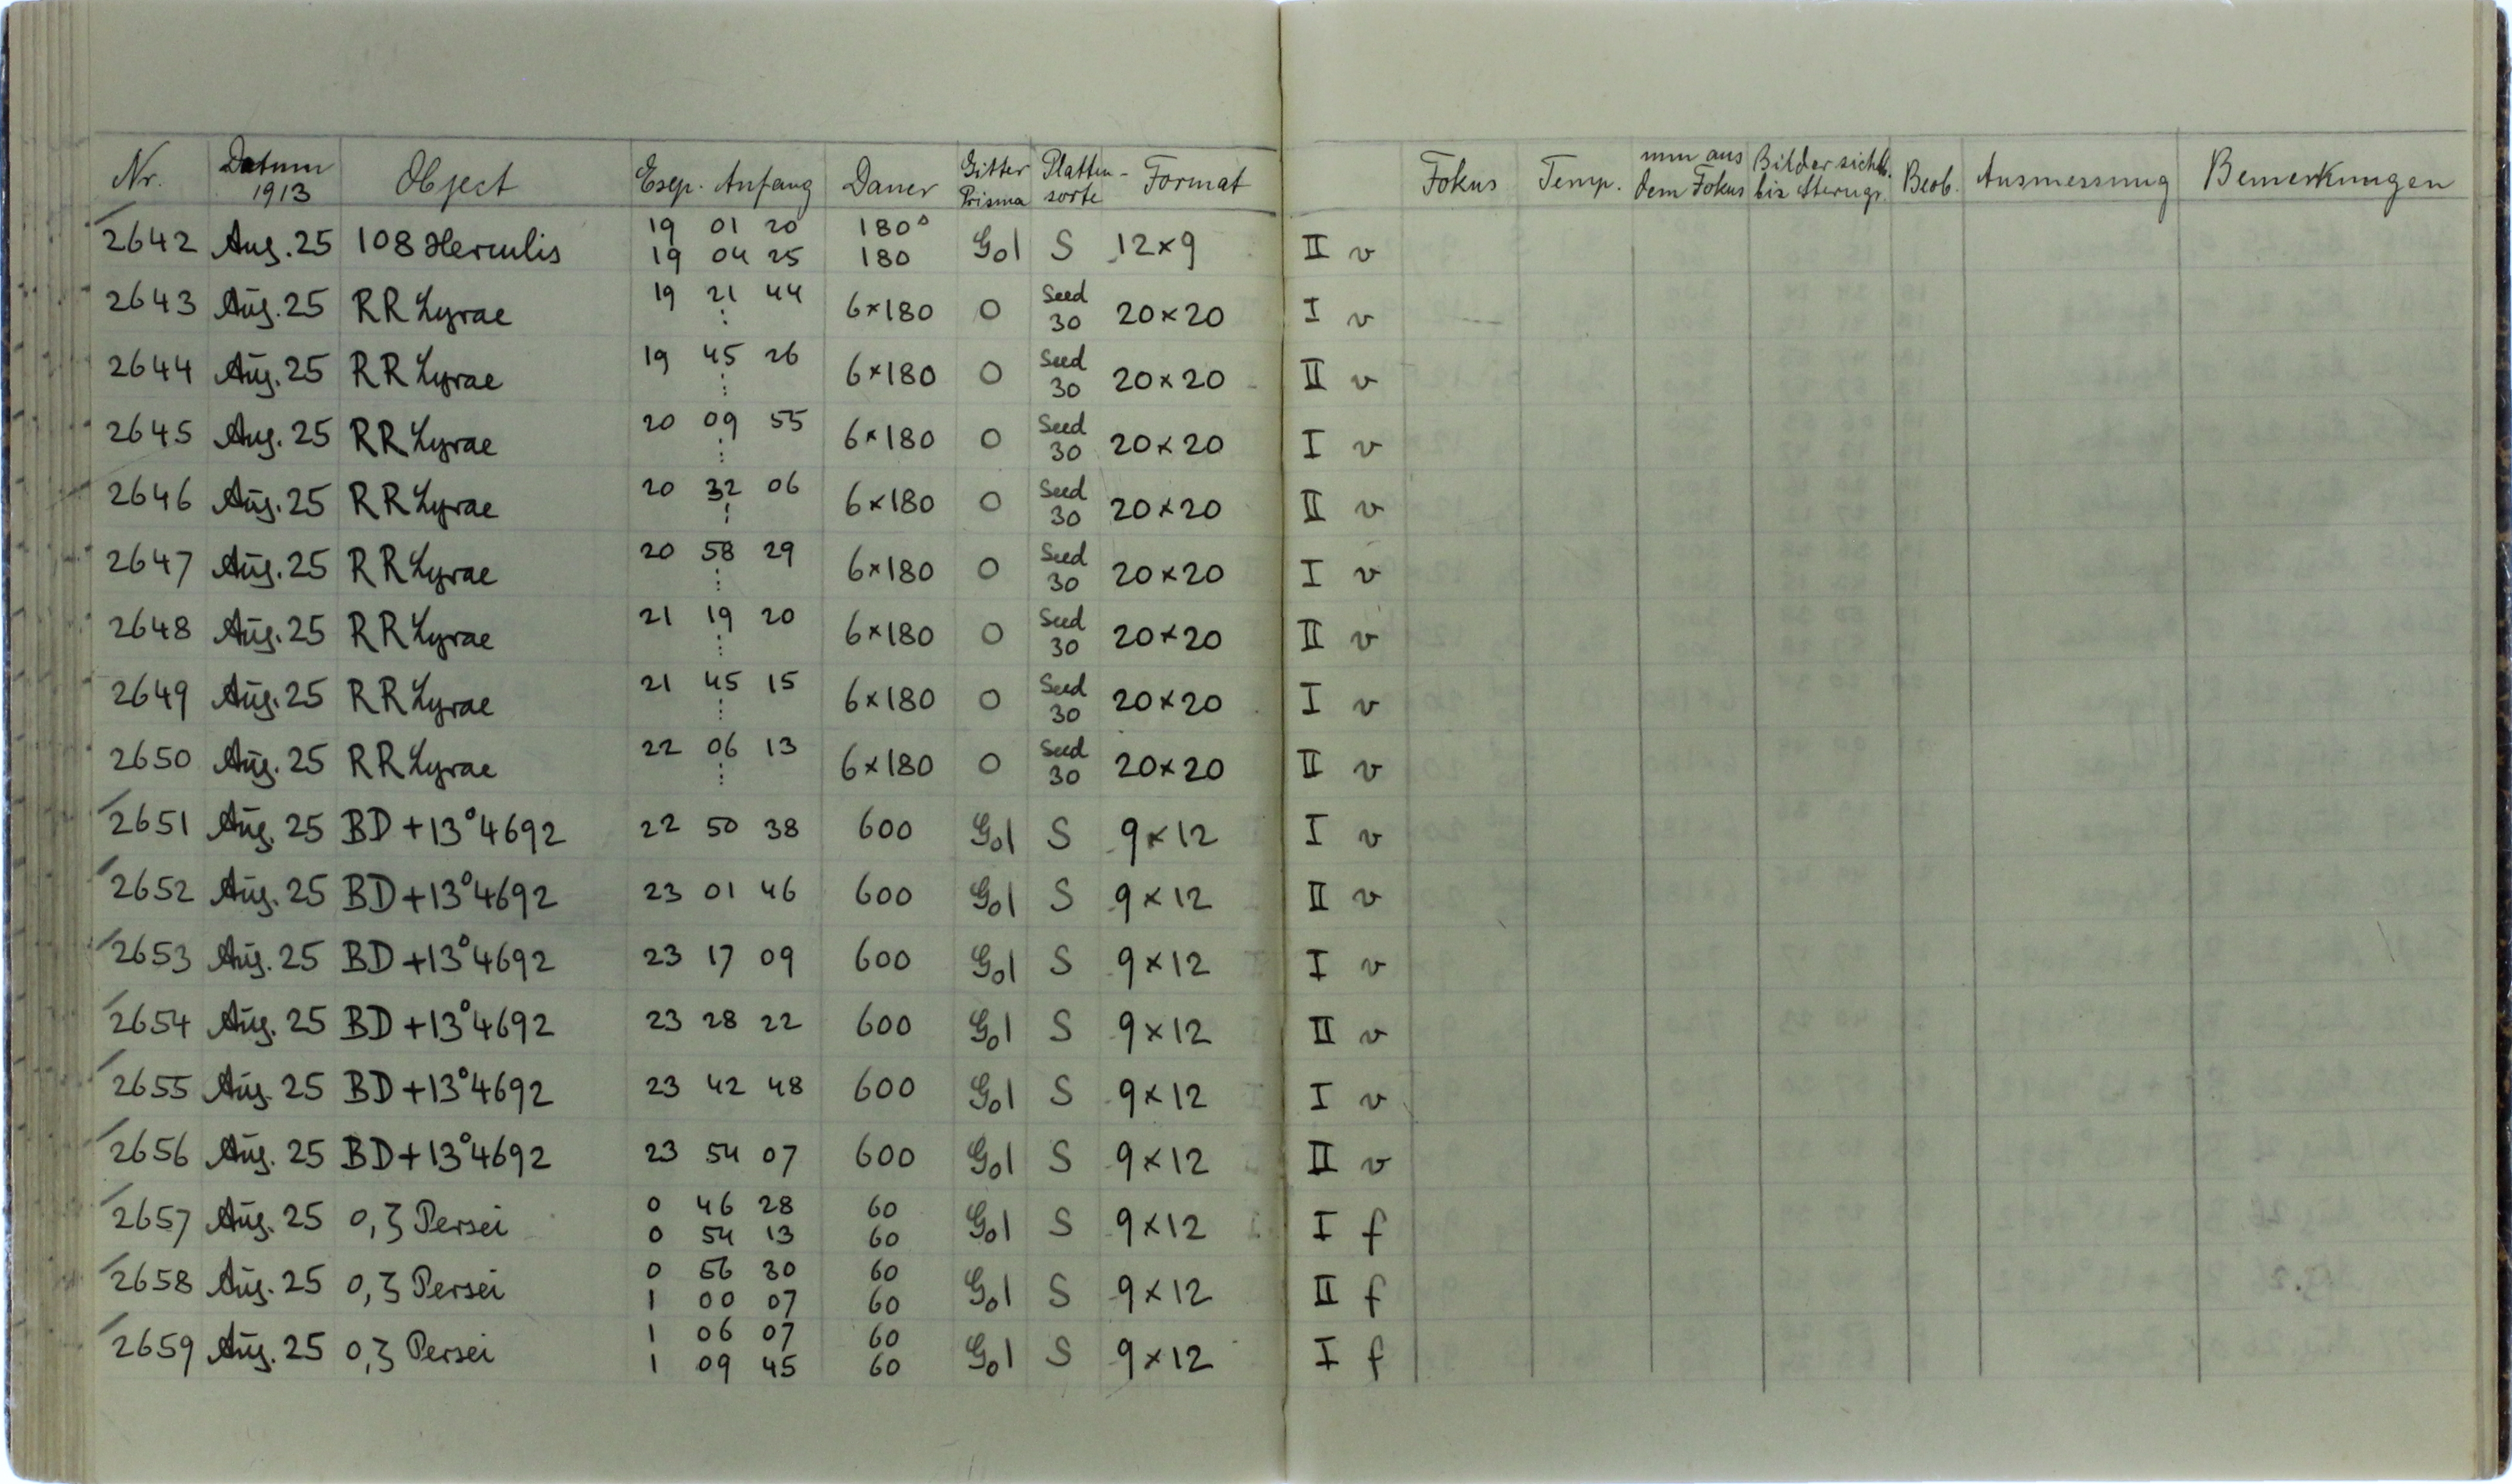 Nr. Datum 1913 Object Exp. Anfang Dauer Gitter Prisma Platten-sorte Format Fokus Temp. mm aus dem Fokus Bilder sichtb. bis Sterngr. Beob. Ausmessung Bemerkungen
2642 Aug. 25 108 Herculis 19 01 20 180s G01 S 12×9 II v
19 04 25 180
2643 Aug. 25 RR Lyrae 19 21 44 6×180 0 Seed 30 20×20 I v
2644 Aug. 25 RR Lyrae 19 45 26 6×180 0 Seed 30 20×20 II v
2645 Aug. 25 RR Lyrae 20 09 55 6×180 0 Seed 30 20×20 I v
2646 Aug. 25 RR Lyrae 20 32 06 6×180 0 Seed 30 20×20 II v
2647 Aug. 25 RR Lyrae 20 58 29 6×180 0 Seed 30 20×20 I v
2648 Aug. 25 RR Lyrae 21 19 20 6×180 0 Seed 30 20×20 II v
2649 Aug. 25 RR Lyrae 21 45 15 6×180 0 Seed 30 20×20 I v
2650 Aug. 25 RR Lyrae 22 06 13 6×180 0 Seed 30 20×20 II v
2651 Aug. 25 BD +13°4692 22 50 38 600 G01 S 9×12 I v
2652 Aug. 25 BD +13°4692 23 01 46 600 G01 S 9×12 II v
2653 Aug. 25 BD +13°4692 23 17 09 600 G01 S 9×12 I v
2654 Aug. 25 BD +13°4692 23 28 22 600 G01 S 9×12 II v
2655 Aug. 25 BD +13°4692 23 42 48 600 G01 S 9×12 I v
2656 Aug. 25 BD +13°4692 23 54 07 600 G01 S 9×12 II v
2657 Aug. 25 o, ζ Persei 0 46 28 60 G01 S 9×12 I f
0 54 13 60
2658 Aug. 25 o, ζ Persei 0 56 30 60 G01 S 9×12 II f
1 00 07 60
2659 Aug. 25 o, ζ Persei 1 06 07 60 G01 S 9×12 I f
1 09 45 60